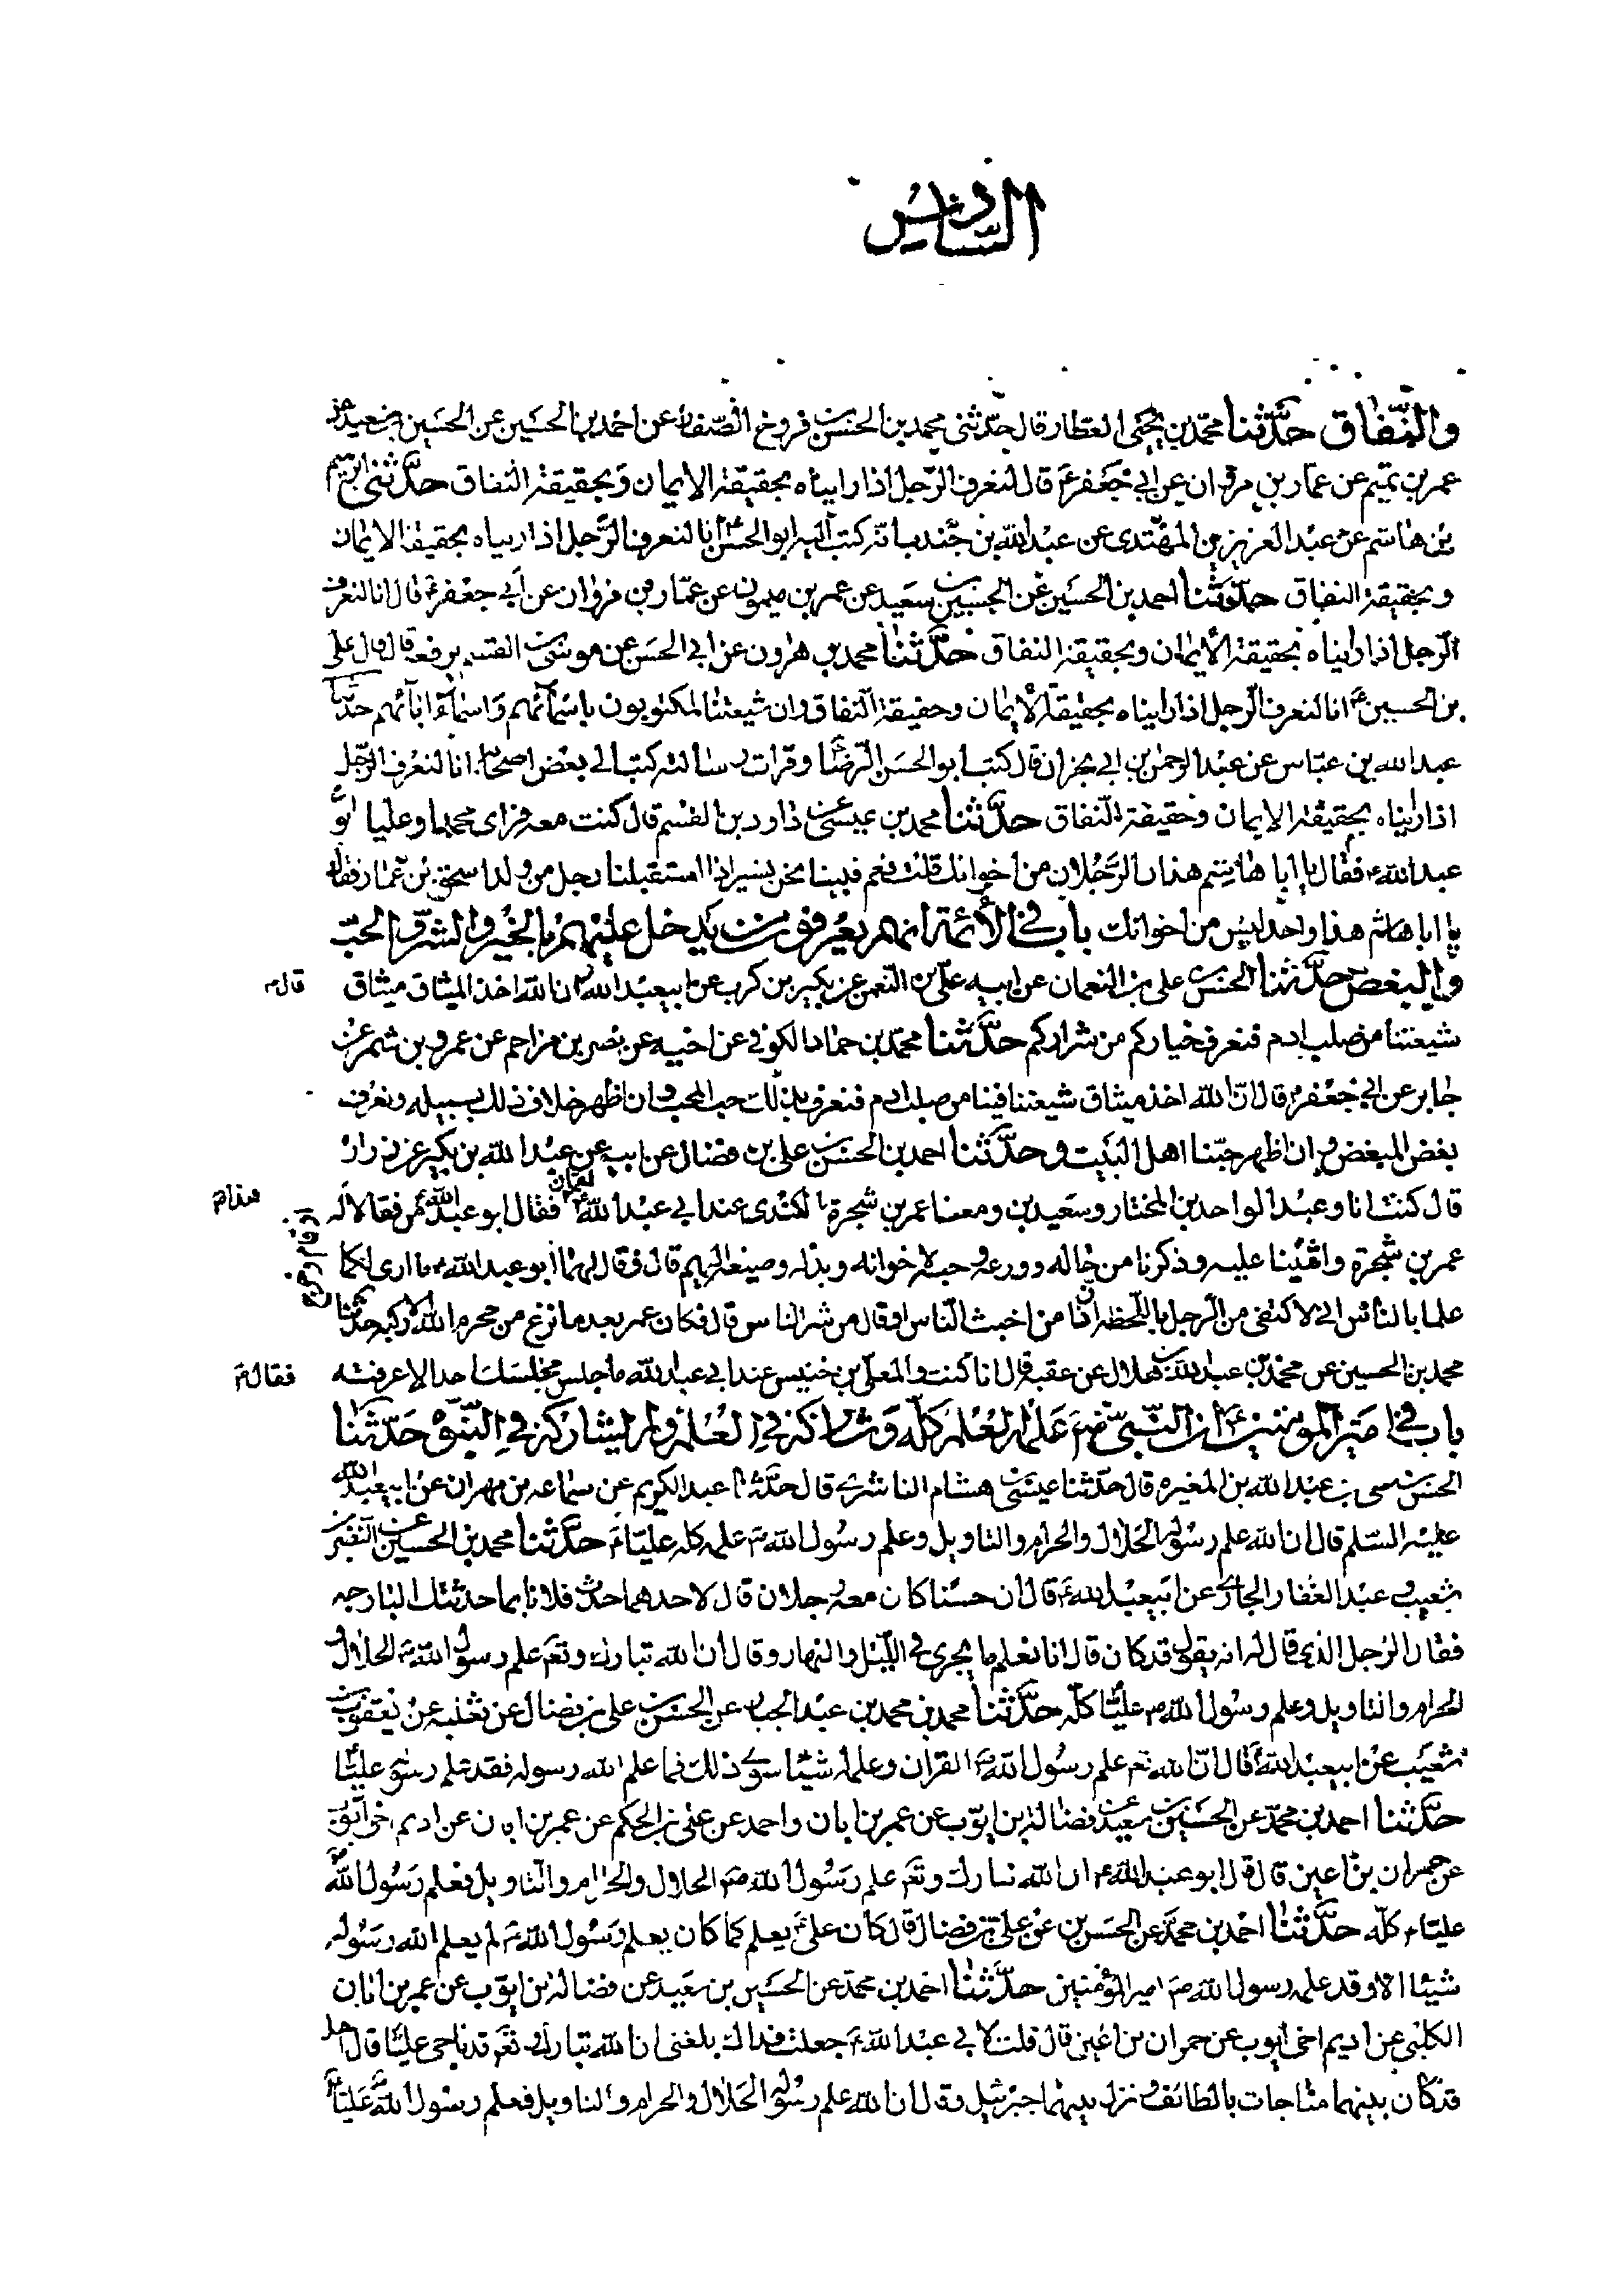 السادس
والنفاق حدثنا محمد بن يحيى العطار قال حدثنى محمد بن الحسن بن فروخ الصفار عن احمد بن الحسين عن الحسين بن سعيد عن
عمر بن تميم عن عمار بن مروان عن ابي جعفر ع قال لنعرف الرجل اذا رايناه بحقيقة الايمان وبحقيقة النفاق حدثنى ابرهيم
بن هاشم عن عبد العزيز بن المهتدى عن عبد الله بن جندب انه كتب اليه ابو الحسن انا لنعرف الرجل اذا رايناه بحقيقة الايمان
وبحقيقة النفاق حدثنا احمد بن الحسين عن الحسين بن سعيد عن عمر بن ميمون عن عمار بن مروان عن ابي جعفر ع قال انا لنعرف
الرجل اذا رايناه بحقيقة الايمان وبحقيقة النفاق حدثنا محمد بن هارون عن ابي الحسن عن موسى بن القسم يرفعه قال قال على
بن الحسين ع انا لنعرف الرجل اذا رايناه بحقيقة الايمان وحقيقة النفاق وان شيعتنا لمكتوبون باسمائهم واسماء ابائهم حدثنا
عبد الله بن عباس عن عبد الرحمن بن ابي نجران قال كتب ابو الحسن الرضا ع وقرات رسالته كتب الى بعض اصحابه انا لنعرف الرجل
اذا رايناه بحقيقة الايمان وحقيقة النفاق حدثنا محمد بن عيسى عن داود بن القسم قال كنت معه فراى محمدا وعليا ابو
عبد الله ع فقال يا ابا هاشم هذان الرجلان من اخوانك قلت نعم فبينا نحن نسير اذا استقبلنا رجل من ولد اسحق بن عمار فقال
يا ابا هاشم هذا واحد ليس من اخوانك باب فى الأئمة انهم يعرفون من يدخل عليهم بالخير والشر والحب
والبغض حدثنا الحسن بن على بن النعمان عن ابيه على بن النعمن عن بكير بن كرب عن ابيعبد الله ع ان الله اخذ الميثاق ميثاق
قال م
شيعتنا من صلب ادم فنعرف خياركم من شراركم حدثنا محمد بن حماد الكوفى عن اخيه عن نصر بن مزاحم عن عمرو بن شمر عن
جابر عن ابي جعفر ع قال ان الله اخذ ميثاق شيعتنا فينا من صلب ادم فنعرف بذلك حب المحب وان اظهر خلاف ذلك بسبيله ونعرف
بغض المبغض وان اظهر حبنا اهل البيت وحدثنا احمد بن الحسن بن على بن فضال عن ابيه عن عبد الله بن بكير عن زرارة
قال كنت انا وعبد الواحد بن المختار وسعيد بن ومعنا عمر بن شجرة الكندى عند ابي عبد الله ع فقال ابو عبد الله ع من فقالا له
لقمان
هذا م
عمر بن شجرة واثنينا عليه وذكرنا من حاله وورعه وحبه لاخوانه وبذله وصنيعه اليهم قال فقال لهما ابو عبد الله ع ما ارى لكما
علما بالناس انى لاكتفى من الرجل باللحظة ان ذا من اخبث الناس او قال من شر الناس قال فكان عمر بعد ما نزع من محرم الله الا ركبه حدثنا
محمد بن الحسين عن محمد بن عبد الله بن هلال عن عقبة قال انا كنت والمعلى بن خنيس عند ابي عبد الله ما جلس مجلسك احد الا عرفته
فقال م
باب فى امير المؤمنين ع ان النبى ص علمه العلم كله وشاركه في العلم ولم يشاركه في النبوة حدثنا
الحسن بن موسى عن عبد الله بن المغيره قال حدثنا عيسى بن هشام الناشرى قال حدثنا عبد الكريم عن سماعه بن مهران عن ابيعبد الله
عليه السلم قال ان الله علم رسوله الحلال والحرام والتاويل وعلم رسول الله ص علمه كله عليا ع حدثنا محمد بن الحسين عن النضر بن
شعيب عن عبد الغفار الجازى عن ابيعبد الله ع قال ان حسنا كان معه رجلان قال لاحدهما حدث فلانا بما حدثتك البارحه
فقال الرجل الذى قال له انه يقول قد كان قال انا نعلم ما يجرى فى الليل والنهار وقال ان الله تبارك وتعم علم رسول الله ص الحلال و
الحرام والتاويل وعلم رسول الله ص عليا كله حدثنا محمد بن محمد بن عبد الجبار عن الحسن بن على بن فضال عن ثعلبه عن يعقوب بن
شعيب عن ابيعبد الله ع قال ان الله تعم علم رسول الله ص القران وعلمه شيئا سوى ذلك فما علم الله رسوله فقد علم رسوله عليا
حدثنا احمد بن محمد عن الحسين بن سعيد عن فضالة بن ايوب عن عمر بن ابان واحمد عن على بن الحكم عن عمر بن ابان عن اديم اخى ايوب
عن حمران بن اعين قال قال ابو عبد الله ع ان الله تبارك وتعم علم رسول الله ص الحلال والحرام والتاويل فعلم رسول الله
عليا ع كله حدثنا احمد بن محمد عن الحسن بن عن على بن فضال قال كان على ع يعلم كما كان يعلم رسول الله ص لم يعلم الله رسوله
شيئا الا وقد علمه رسول الله ص امير المؤمنين حدثنا احمد بن محمد عن الحسين بن سعيد عن فضالة بن ايوب عن عمر بن ابان
الكلبى عن اديم اخى ايوب عن حمران بن اعين قال قلت لابي عبد الله ع جعلت فداك بلغنى ان الله تبارك وتعم قد ناجى عليا قال اجل
قد كان بينهما مناجات بالطائف نزل بينهما جبرئيل وقال ان الله علم رسوله الحلال والحرام والتاويل فعلم رسول الله عليا